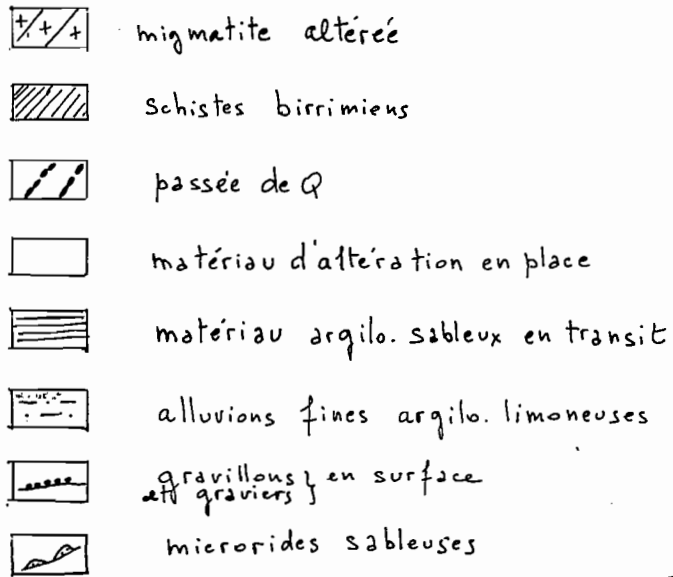 migmatite altérée
schistes birrimiens
passée de Q
matériau d'altération en place
matériau argilo. sableux en transit
alluvions fines argilo. limoneuses
gravillons } en surface
et graviers }
microrides sableuses